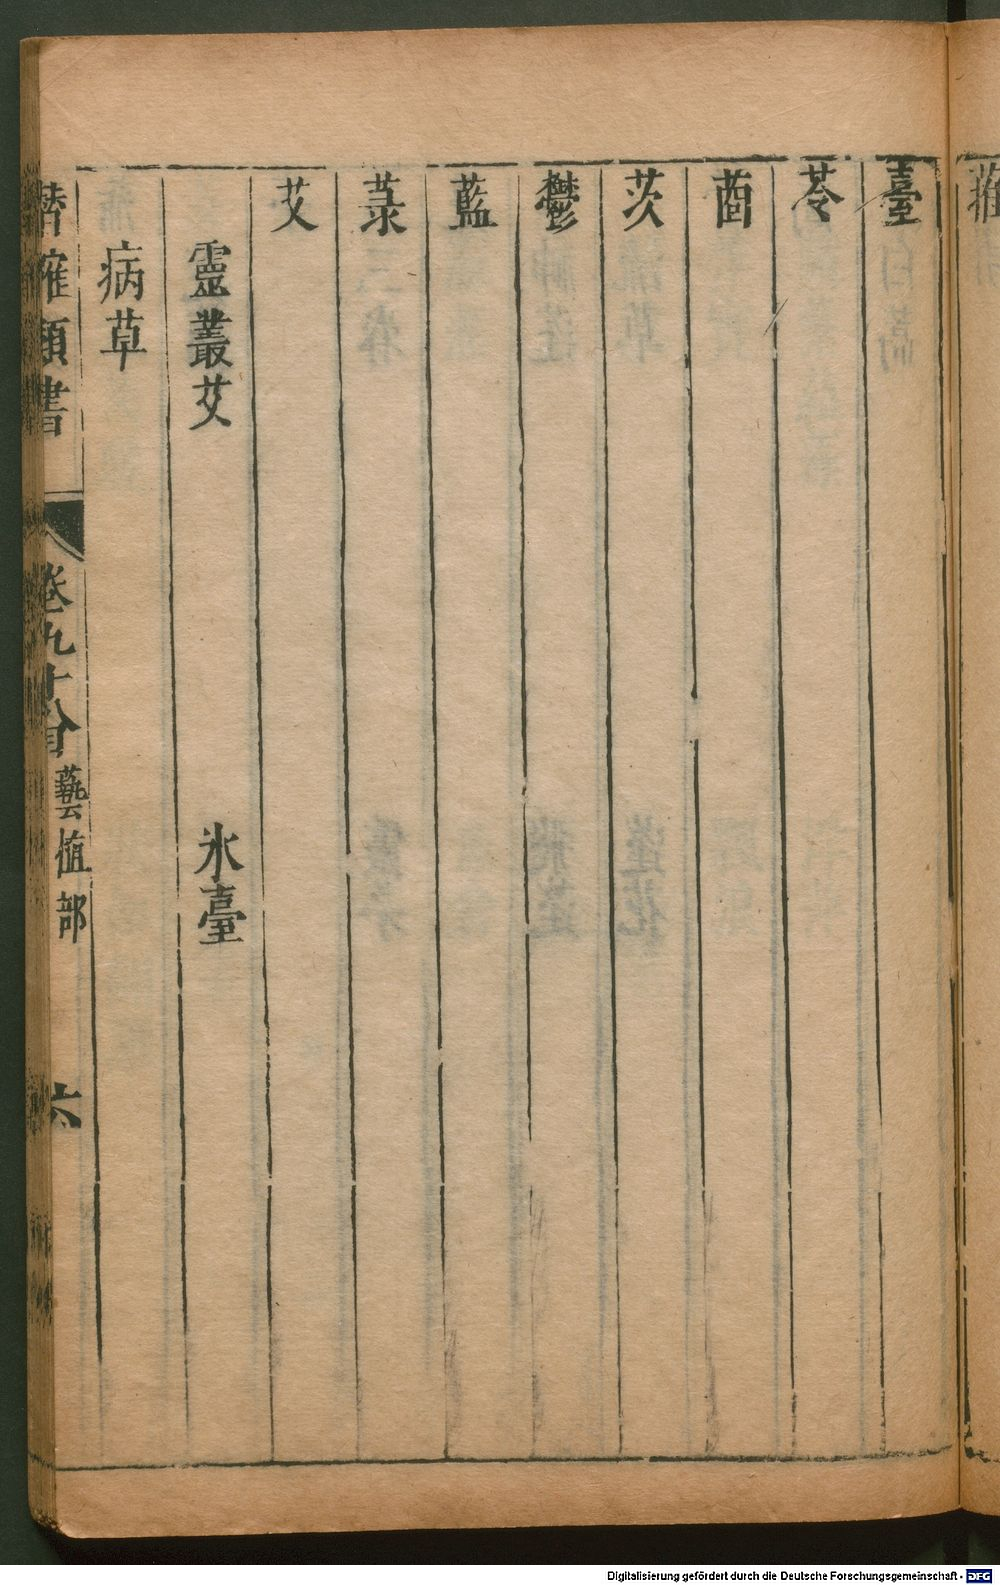 臺
苓
莔
茨
鬱
藍
菉
艾
靈叢艾 氷臺
病草
潛確類書 卷九十八目 藝植部 六
Digitalisierung gefördert durch die Deutsche Forschungsgemeinschaft - DFG